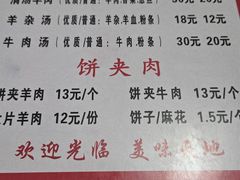 清汤羊肉 30元 20元
羊杂汤（优质/普通：羊杂.羊血.粉条） 18元 12元
牛肉汤（优质/普通：牛肉.粉条） 30元 20元
饼夹肉
饼夹羊肉 13元/个 饼夹牛肉 13元/个
片羊肉 12元/份 饼子/麻花 1.5元/个
欢迎光临 美味 地